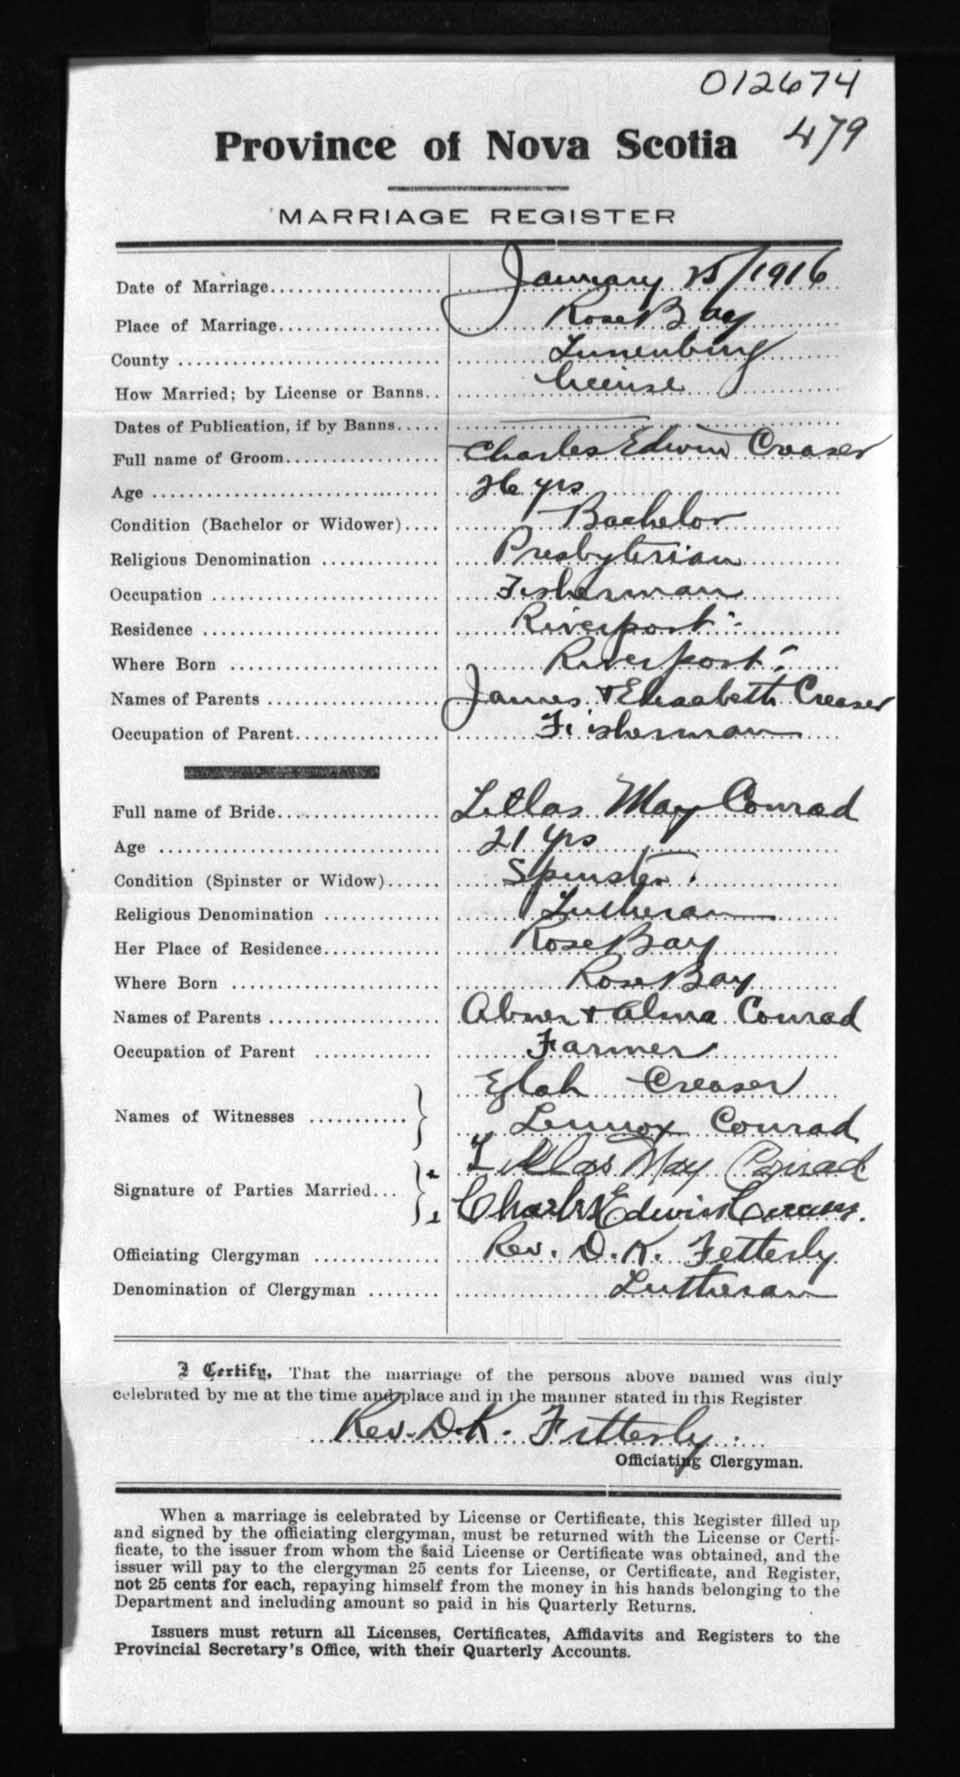 012674
479
Province of Nova Scotia
MARRIAGE REGISTER
Date of Marriage.................... January 25/1916
Place of Marriage................... Rose Bay
County ............................. Lunenburg
How Married; by License or Banns.. License
Dates of Publication, if by Banns.....
Full name of Groom.................. Charles Edwin Creaser
Age ................................ 26 yrs
Condition (Bachelor or Widower).... Bachelor
Religious Denomination ............. Presbyterian
Occupation ......................... Fisherman
Residence .......................... Riverport
Where Born ......................... Riverport
Names of Parents ................... James & Elisabeth Creaser
Occupation of Parent................ Fisherman
Full name of Bride.................. Letlas May Conrad
Age ................................ 21 yrs
Condition (Spinster or Widow)...... Spinster.
Religious Denomination ............. Lutheran
Her Place of Residence............. Rose Bay
Where Born ......................... Rose Bay
Names of Parents ................... Abner & Alma Conrad
Occupation of Parent ............... Farmer
Creaser
Names of Witnesses ...........
Lennox Conrad
May Conrad
Signature of Parties Married...
Charles Edwin Creaser.
Officiating Clergyman .............. Rev. D. K. Fetterly
Denomination of Clergyman ........ Lutheran
I Certify, That the marriage of the persons above named was duly
celebrated by me at the time and place and in the manner stated in this Register
Rev. D. K. Fetterly.
Officiating Clergyman.
When a marriage is celebrated by License or Certificate, this Register filled up
and signed by the officiating clergyman, must be returned with the License or Certi-
ficate, to the issuer from whom the said License or Certificate was obtained, and the
issuer will pay to the clergyman 25 cents for License, or Certificate, and Register,
not 25 cents for each, repaying himself from the money in his hands belonging to the
Department and including amount so paid in his Quarterly Returns.
Issuers must return all Licenses, Certificates, Affidavits and Registers to the
Provincial Secretary's Office, with their Quarterly Accounts.